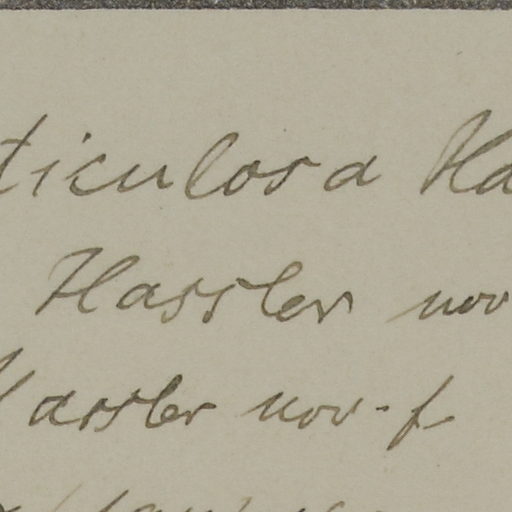 ticulosa Ha
Hassler nov
Hassler nov. f